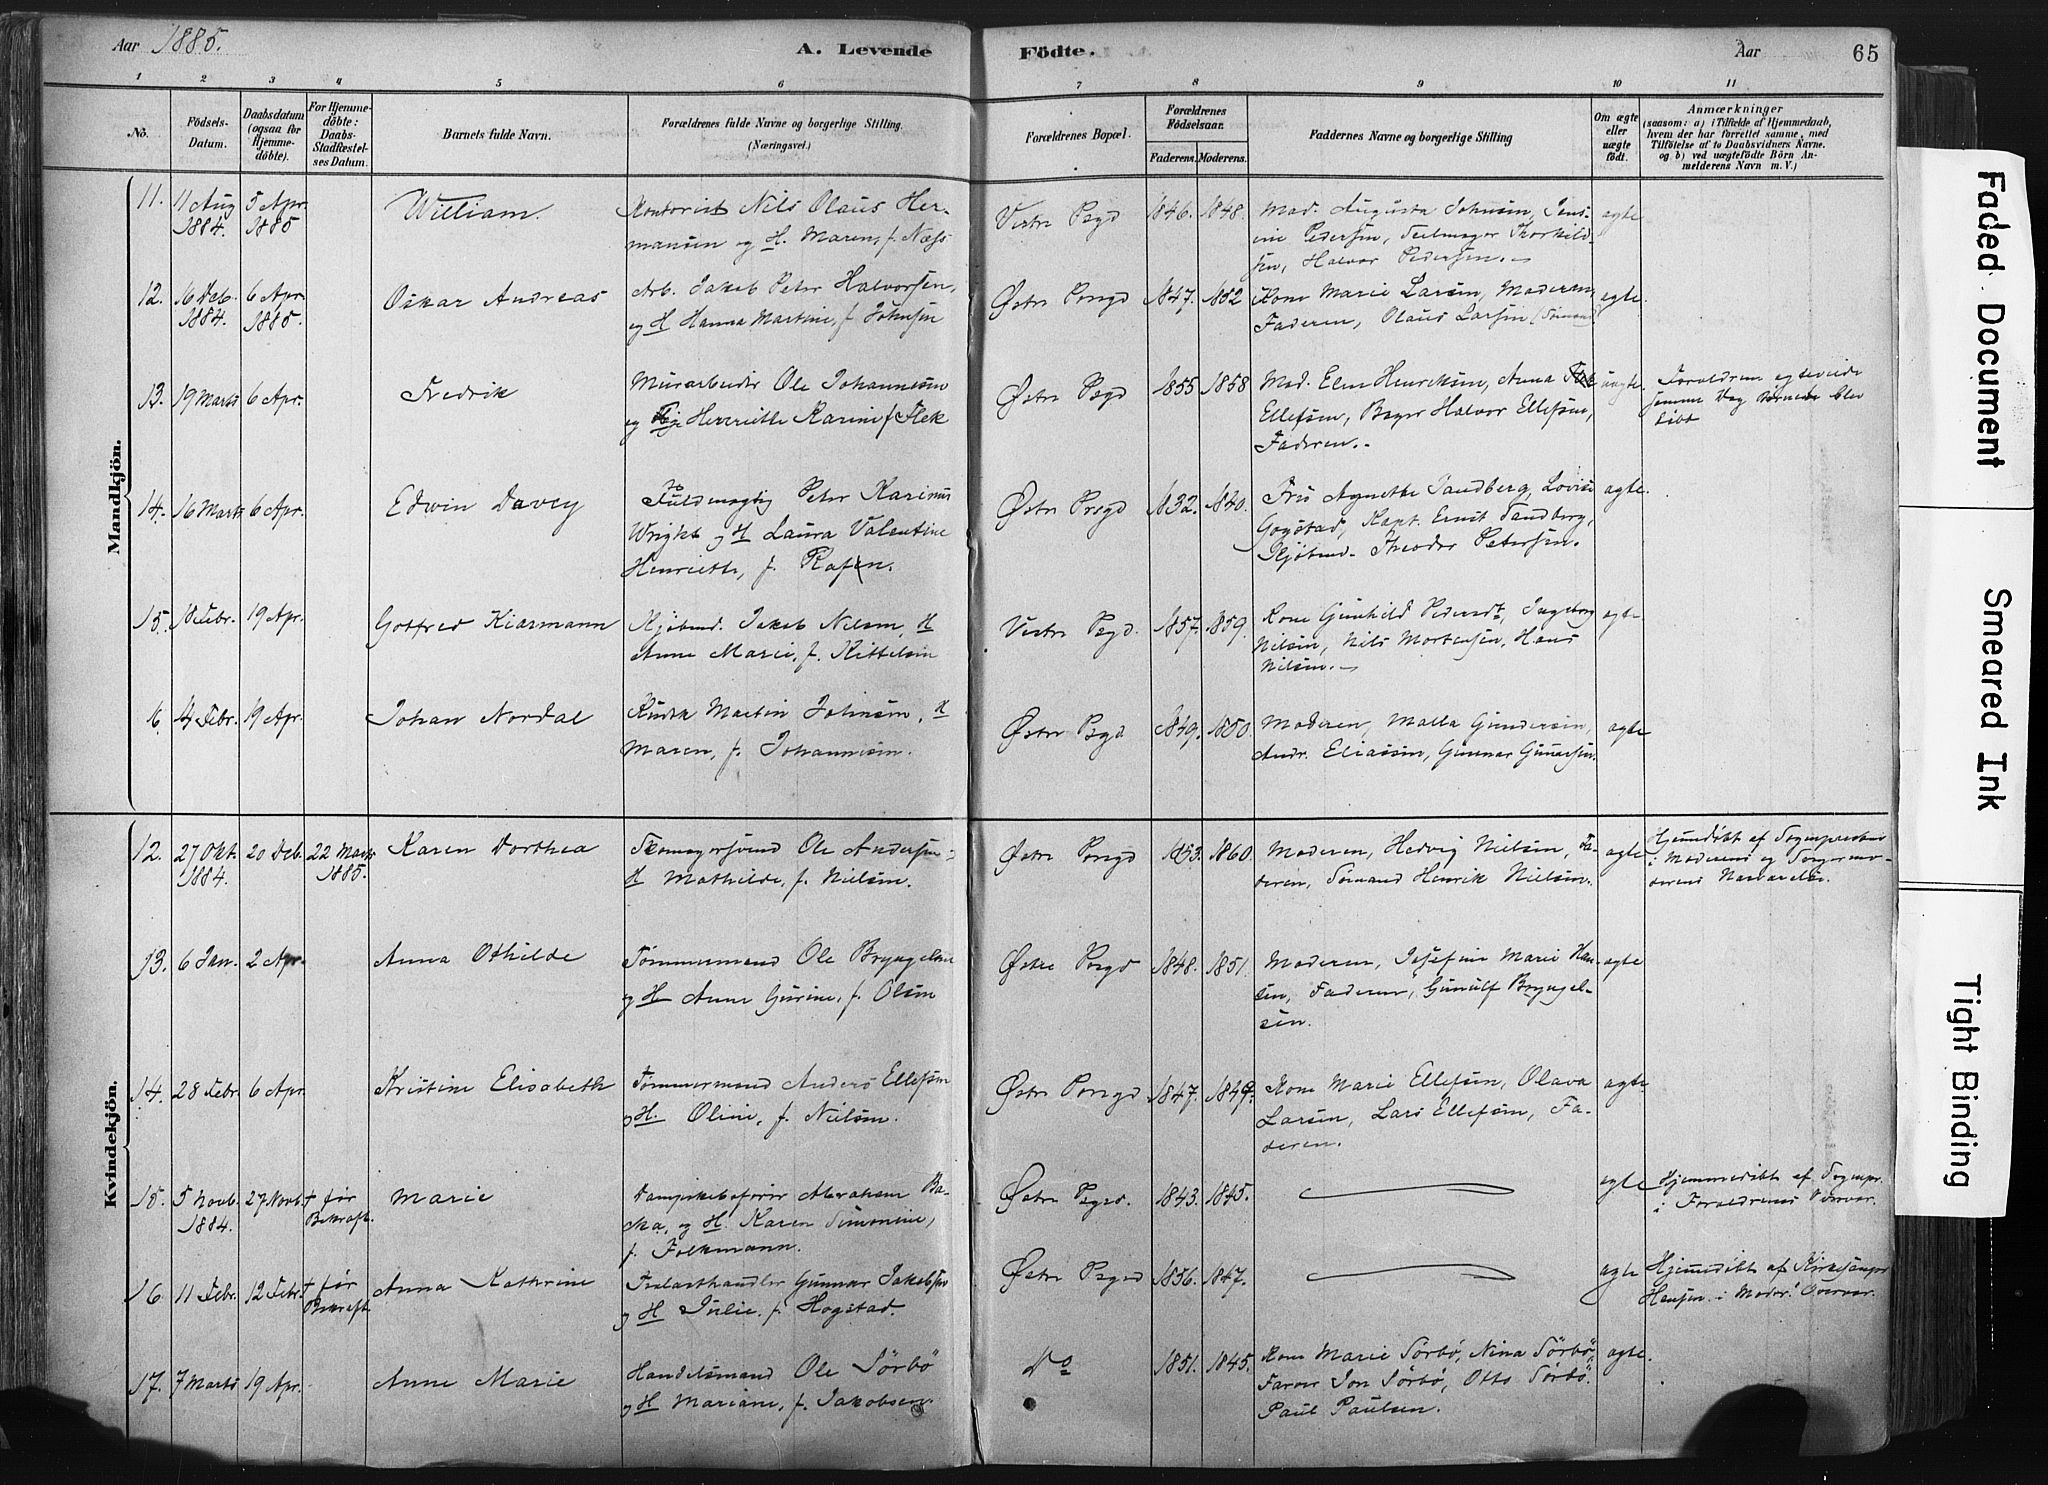 Aar 1885.
A. Levende
Födte.
Aar
65
1 2 3 4 5 6 7 8 9 10 11
No.
Födsels-
Datum.
Daabsdatum
(ogsaa for
Hjemme-
döbte).
For Hjemme-
döbte:
Daabs-
Stadfæstel-
ses Datum.
Barnets fulde Navn.
Forældrenes fulde Navne og borgerlige Stilling.
(Næringsvei.)
Forældrenes Bopæl.
Forældrenes
Födselsaar.
Faderens. Moderens.
Faddernes Navne og borgerlige Stilling
Om ægte
eller
uægte
födt.
Anmærkninger
(saasom: a) i Tilfælde af Hjemmedaab,
hvem der har forrettet samme, med
Tilföielse af to Daabsvidners Navne.
og b) ved uægtefödte Börn An-
melderens Navn m. V.)
Mandkjön.
11. 11 Aug 1884. 5 Apr. 1885 William.
Kontorist Nils Olaus Her-
mansen og H. Maren, f. Næss
Vestre Psgd 1846. 1848.
Mad. Augusta Johnsen, Jens-
ine Pedersen, Seilmager Thorkild-
sen, Halvor Pedersen.
ægte
12. 16 Deb. 1884. 6 Apr. 1885. Oskar Andreas
Arb. Jakob Peter Halvorsen,
og H Hanna Martine, f. Johnsen
Østre Porsgd 1847. 1852
Kone Marie Larsen, Moderen,
Faderen, Olaus Larsen
ægte
13. 19 Marts 6 Apr. Fredrik
Murarbeider Ole Johannesen
og Henriette Karine f Flek
Østre Psgd 1855 1858
Mad. Elen Henriksen, Anna
Ellefsen, Bager Halvor Ellefsen,
Faderen.
uægte
Forældrene egteviede
samme Dag Barnet blev
døbt
14. 16 Marts 6 Apr. Edvin Davey
Fuldmægtig Peter Karinus
Wright og H Laura Valentine
Henriette, f.
Østre Prsgd 1832. 1840.
Fru Agnette Sandberg, Lovise
Gogstad, Kapt. Ernst Sandberg,
Kjøbmd. Theodor Petersen.
ægte
15. 18 Febr. 19 Apr. Gotfred Kiærmann
Kjøbmd. Jakob Nilsen, H
Anne Marie, f. Kittelsen
Vestre Psgd. 1857. 1859.
Kone Gunhild Pedersdt, Ingeborg
Nilsen, Nils Mortensen, Hans
Nilsen.
ægte
16. 14 Febr. 19 Apr. Johan Nordal
Kudsk Martin Johnsen, H
Maren, f. Johannesen.
Østre Psgd 1849. 1850.
Moderen, Malla Gundersen,
Andr. Eliassen, Gunnar Gunersen.
ægte
Kvindekjön.
12. 27 Okt. 1884. 20 Deb. 22 Marts 1885. Karen Dorthea
Skomagersvend Ole Andersen
H Mathilde, f. Nielsen.
Østre Porsgd 1853. 1860.
Moderen, Hedvig Nielsen, Fa-
deren, Sømand Henrik Nielsen.
ægte
Hjemdøbt af Sognepræsten
i Moderens og Sogermo-
derens Nærværelse.
13. 6 Jan. 2 Apr. Anna Othilde
Tømmermand Ole Bryngelsen
og H Anne Gurine, f. Olsen
Østre Porsgd 1848. 1851.
Moderen, Josefine Marie Han-
sen, Faderen, Gunulf Bryngel-
sen.
ægte
14. 28 Febr. 6 Apr. Kristine Elisabeth
Tømmermand Anders Ellefsen
og H. Oline, f. Nielsen.
Østre Porsgd 1847. 1849.
Kone Marie Ellefsen, Olava
Larsen, Lars Ellefsen, Fa-
deren.
ægte
15. 5 Novb. 1884. 27 Novb. † før Bekræft. Marie
Dampskibsfører Abraham Ba-
cka, og H. Karen Simonine,
f. Folkmann.
Østre Psgrd. 1843. 1845.
ægte
Hjemmedøbt af Sognepr.
i Forældrenes Overvær.
16 11 Febr. 12 Febr. † før Bekræft. Anna Kathrine
Trælasthandler Gunnar Jakobsen
og H Julie, f. Hogstad.
Østre Psgrd 1856. 1847.
ægte
Hjemdøbt af Kirkesanger
Hansen i Moder. Overvær.
17. 7 Marts 19 Apr. Anne Marie
Handelsmand Ole Sörbö
og H Mariane, f. Jakobsen.
Do 1851. 1845.
Kone Marie Sörbö, Nina Sörbö,
Farver Jon Sörbö, Otto Sörbö.
Paul Paulsen.
ægte.
Faded Document
Smeared Ink
Tight Binding